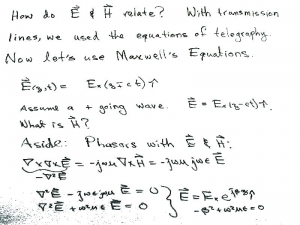 How do E⃗ & H⃗ relate? With transmission
lines, we used the equations of telegraphy.
Now let's use Maxwell's Equations.
E⃗(z,t) = Ex(z-ct)
Assume a + going wave. E⃗ = Ex(z-ct)
What is H⃗?
Aside: Phasors with E⃗ & H⃗:
∇×∇×E⃗ = -jωμ∇×H⃗ = -jωμ jωε E⃗
-∇²E⃗
∇²E⃗ - jωε jωμ E⃗ = 0
∇²E⃗ + ω²με E⃗ = 0
-β² + ω²με = 0